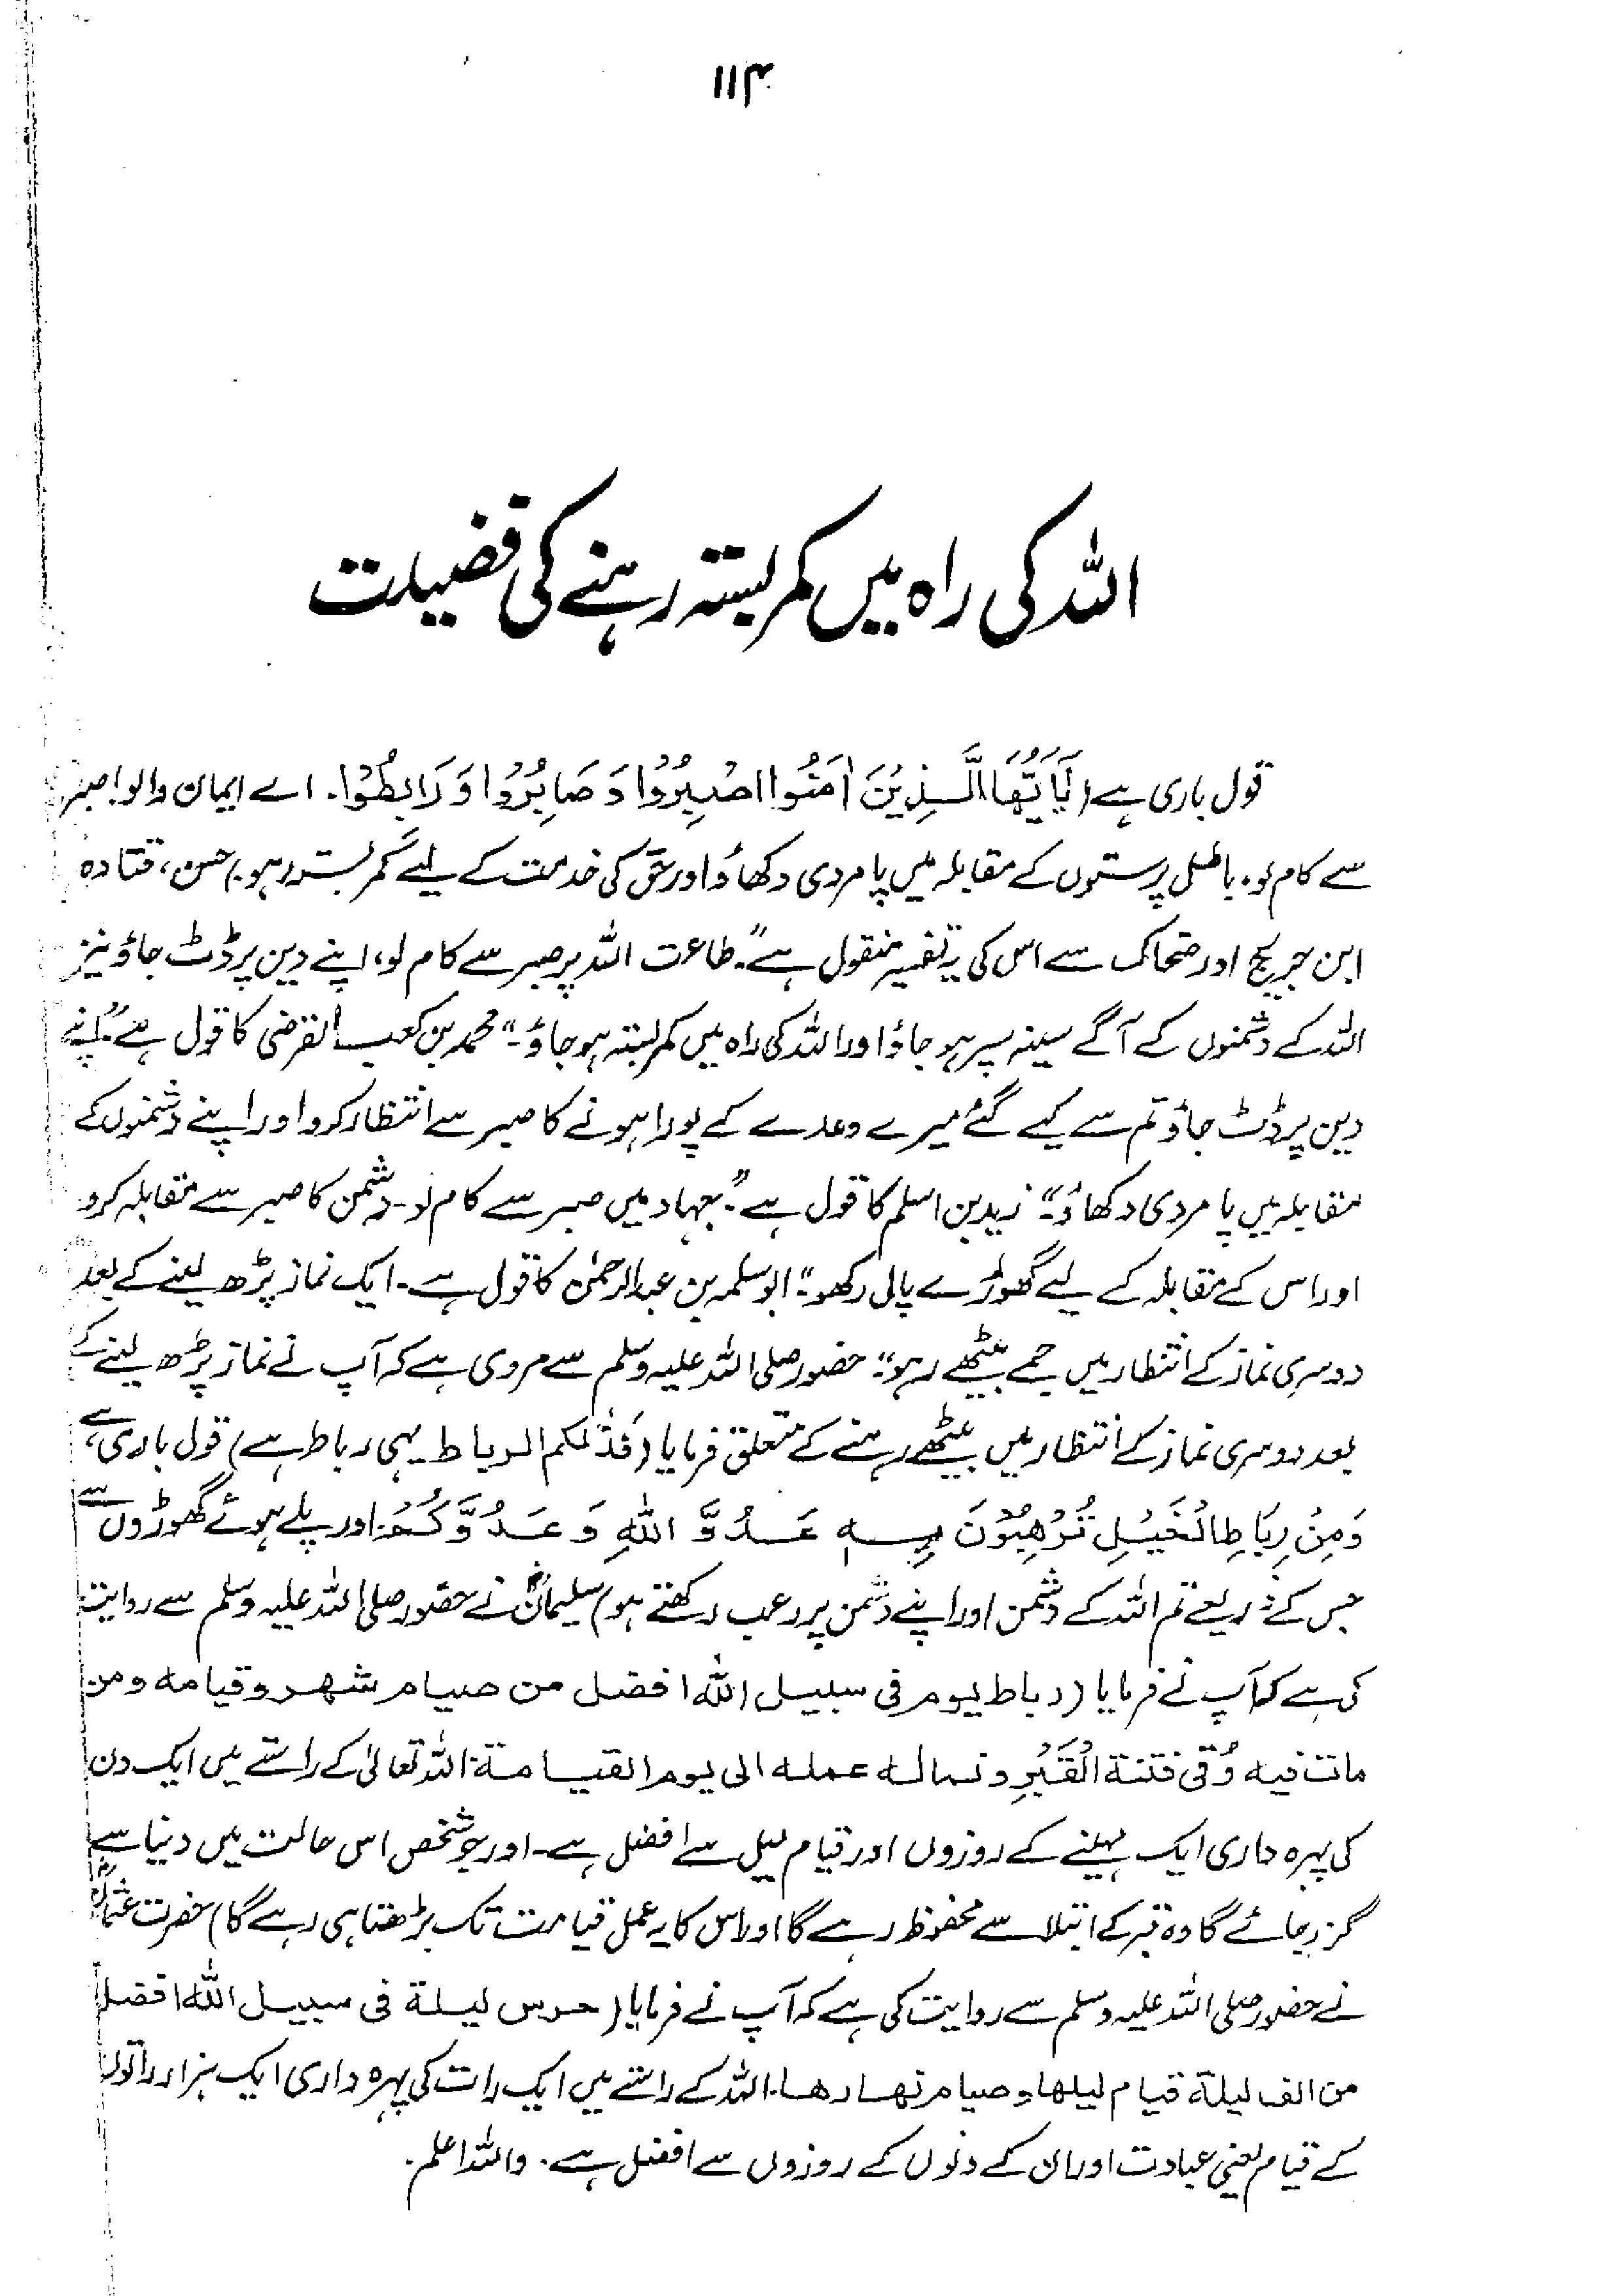 ۱۱۴
اللہ کی راہ میں کمربستہ رہنے کی فضیلت
قول باری ہے (يَآيُّهَا الَّذِينَ اٰمَنُوا اصْبِرُوْا وَصَابِرُوْا وَرَابِطُوْا۔ اے ایمان والو! صبر
سے کام لو۔ باطل پرستوں کے مقابلہ میں پامردی دکھاؤ اور حق کی خدمت کے لیے کمربستہ رہو۔) حسن، قتادہ
ابن جریج اور ضحاک سے اس کی یہ تفسیر منقول ہے "۔ طاعت اللہ پر صبر سے کام لو، اپنے دین پر ڈٹ جاؤ نیز
اللہ کے دشمنوں کے آگے سینہ سپر ہو جاؤ اور اللہ کی راہ میں کمربستہ ہو جاؤ۔" محمد بن کعب القرضی کا قول ہے "اپنے
دین پر ڈٹ جاؤ تم سے کیے گئے میرے وعدے کے پورا ہونے کا صبر سے انتظار کرو اور اپنے دشمنوں کے
مقابلہ میں پامردی دکھاؤ۔" زید بن اسلم کا قول ہے "۔ جہاد میں صبر سے کام لو۔ دشمن کا صبر سے مقابلہ کرو
اور اس کے مقابلہ کے لیے گھوڑے پالی رکھو۔" ابو سلمہ بن عبدالرحمٰن کا قول ہے۔ ایک نماز پڑھ لینے کے بعد
دوسری نماز کے انتظار میں جمے بیٹھے رہو۔" حضور صلی اللہ علیہ وسلم سے مروی ہے کہ آپ نے نماز پڑھ لینے کے
بعد دوسری نماز کے انتظار میں بیٹھے رہنے کے متعلق فرمایا (فذٰلکم الرباط یہی رباط ہے) قول باری ہے،
وَمِنْ رِبَاطِ الْخَيْلِ تُرْهِبُوْنَ بِهٖ عَدُوَّ اللهِ وَعَدُوَّكُمْ اور پلے ہوئے گھوڑوں سے
جس کے ذریعے تم اللہ کے دشمن اور اپنے دشمن پر رعب رکھتے ہو) سلیمانؓ نے حضور صلی اللہ علیہ وسلم سے روایت
کی ہے کہ آپ نے فرمایا (رباط یوم فی سبیل اللّٰہ افضل من صیام شھر و قیامہ ومن
مات فیہ وُقِی فتنة الْقَبْرِ ونما لہ عملہ الی یوم القیامة۔ اللہ تعالیٰ کے راستے میں ایک دن
کی پہرہ داری ایک مہینے کے روزوں اور قیام لیل سے افضل ہے۔ اور جو شخص اس حالت میں دنیا سے
گزر جائے گا وہ قبر کے ابتلا سے محفوظ رہے گا اور اس کا یہ عمل قیامت تک بڑھتا ہی رہے گا) حضرت عثمانؓ
نے حضور صلی اللہ علیہ وسلم سے روایت کی ہے کہ آپ نے فرمایا (حرس لیلة فی سبیل اللّٰہ افضل
من الف لیلة قیام لیلھا و صیام نھارھا۔ اللہ کے راستے میں ایک رات کی پہرہ داری ایک ہزار راتوں
کے قیام یعنی عبادت اور ان کے دنوں کے روزوں سے افضل ہے۔ واللہ اعلم۔